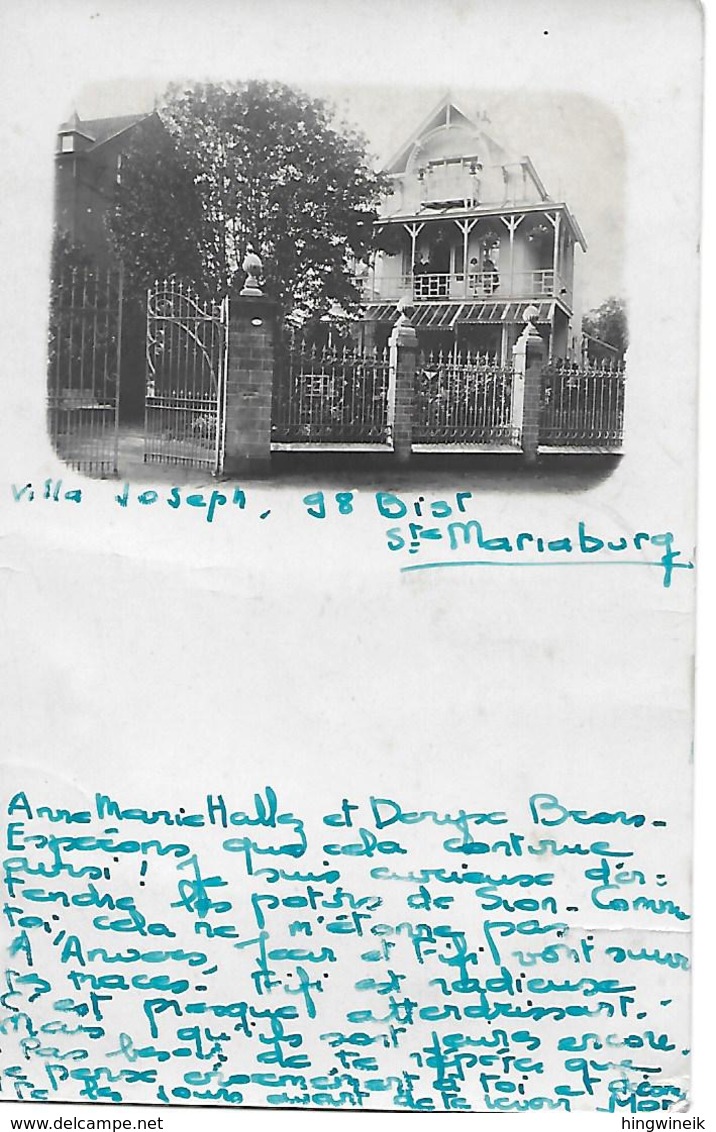 Villa Joseph, 98 Dist
Ste Mariaburg
Anne Marie Hallez et Denyse
Espérons que cela continue
ainsi! Je suis curieuse d'en=
tendre les potins de Sion. Comme
toi, cela ne m'étonne pas.
A Anvers, Jean et Fifi vont suivre
tes traces. Fifi est radieuse
C'est presque attendrissant.
Mais qu'ils sont jeunes encore.
Pas besoin de te répéter que
je pense énormément à toi et
les jours avant de te revoir Mon
hingwineik